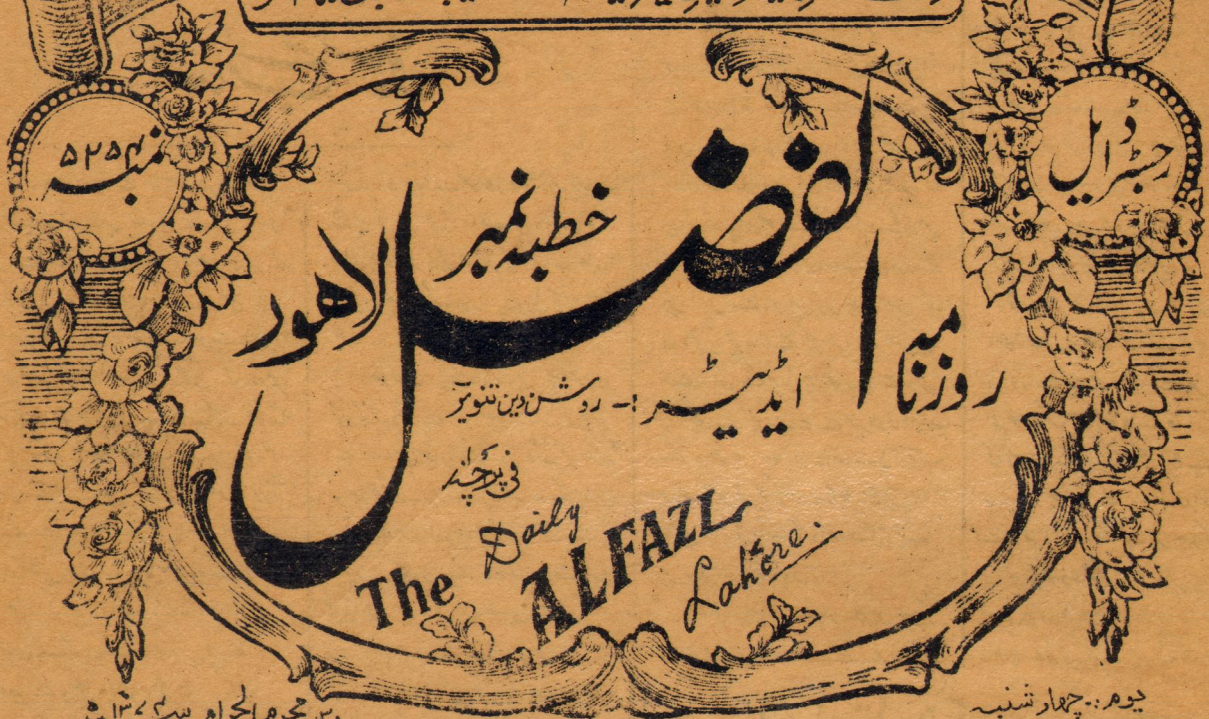 رجسٹرڈ ایل
نمبر ۵۲۵۴
روزنامہ الفضل لاهور
خطبہ نمبر
ایڈیٹر :- روشن دین تنویر
فی پرچہ
The Daily ALFAZL Lahore.
یوم :- چهار شنبہ
محرم الحرام